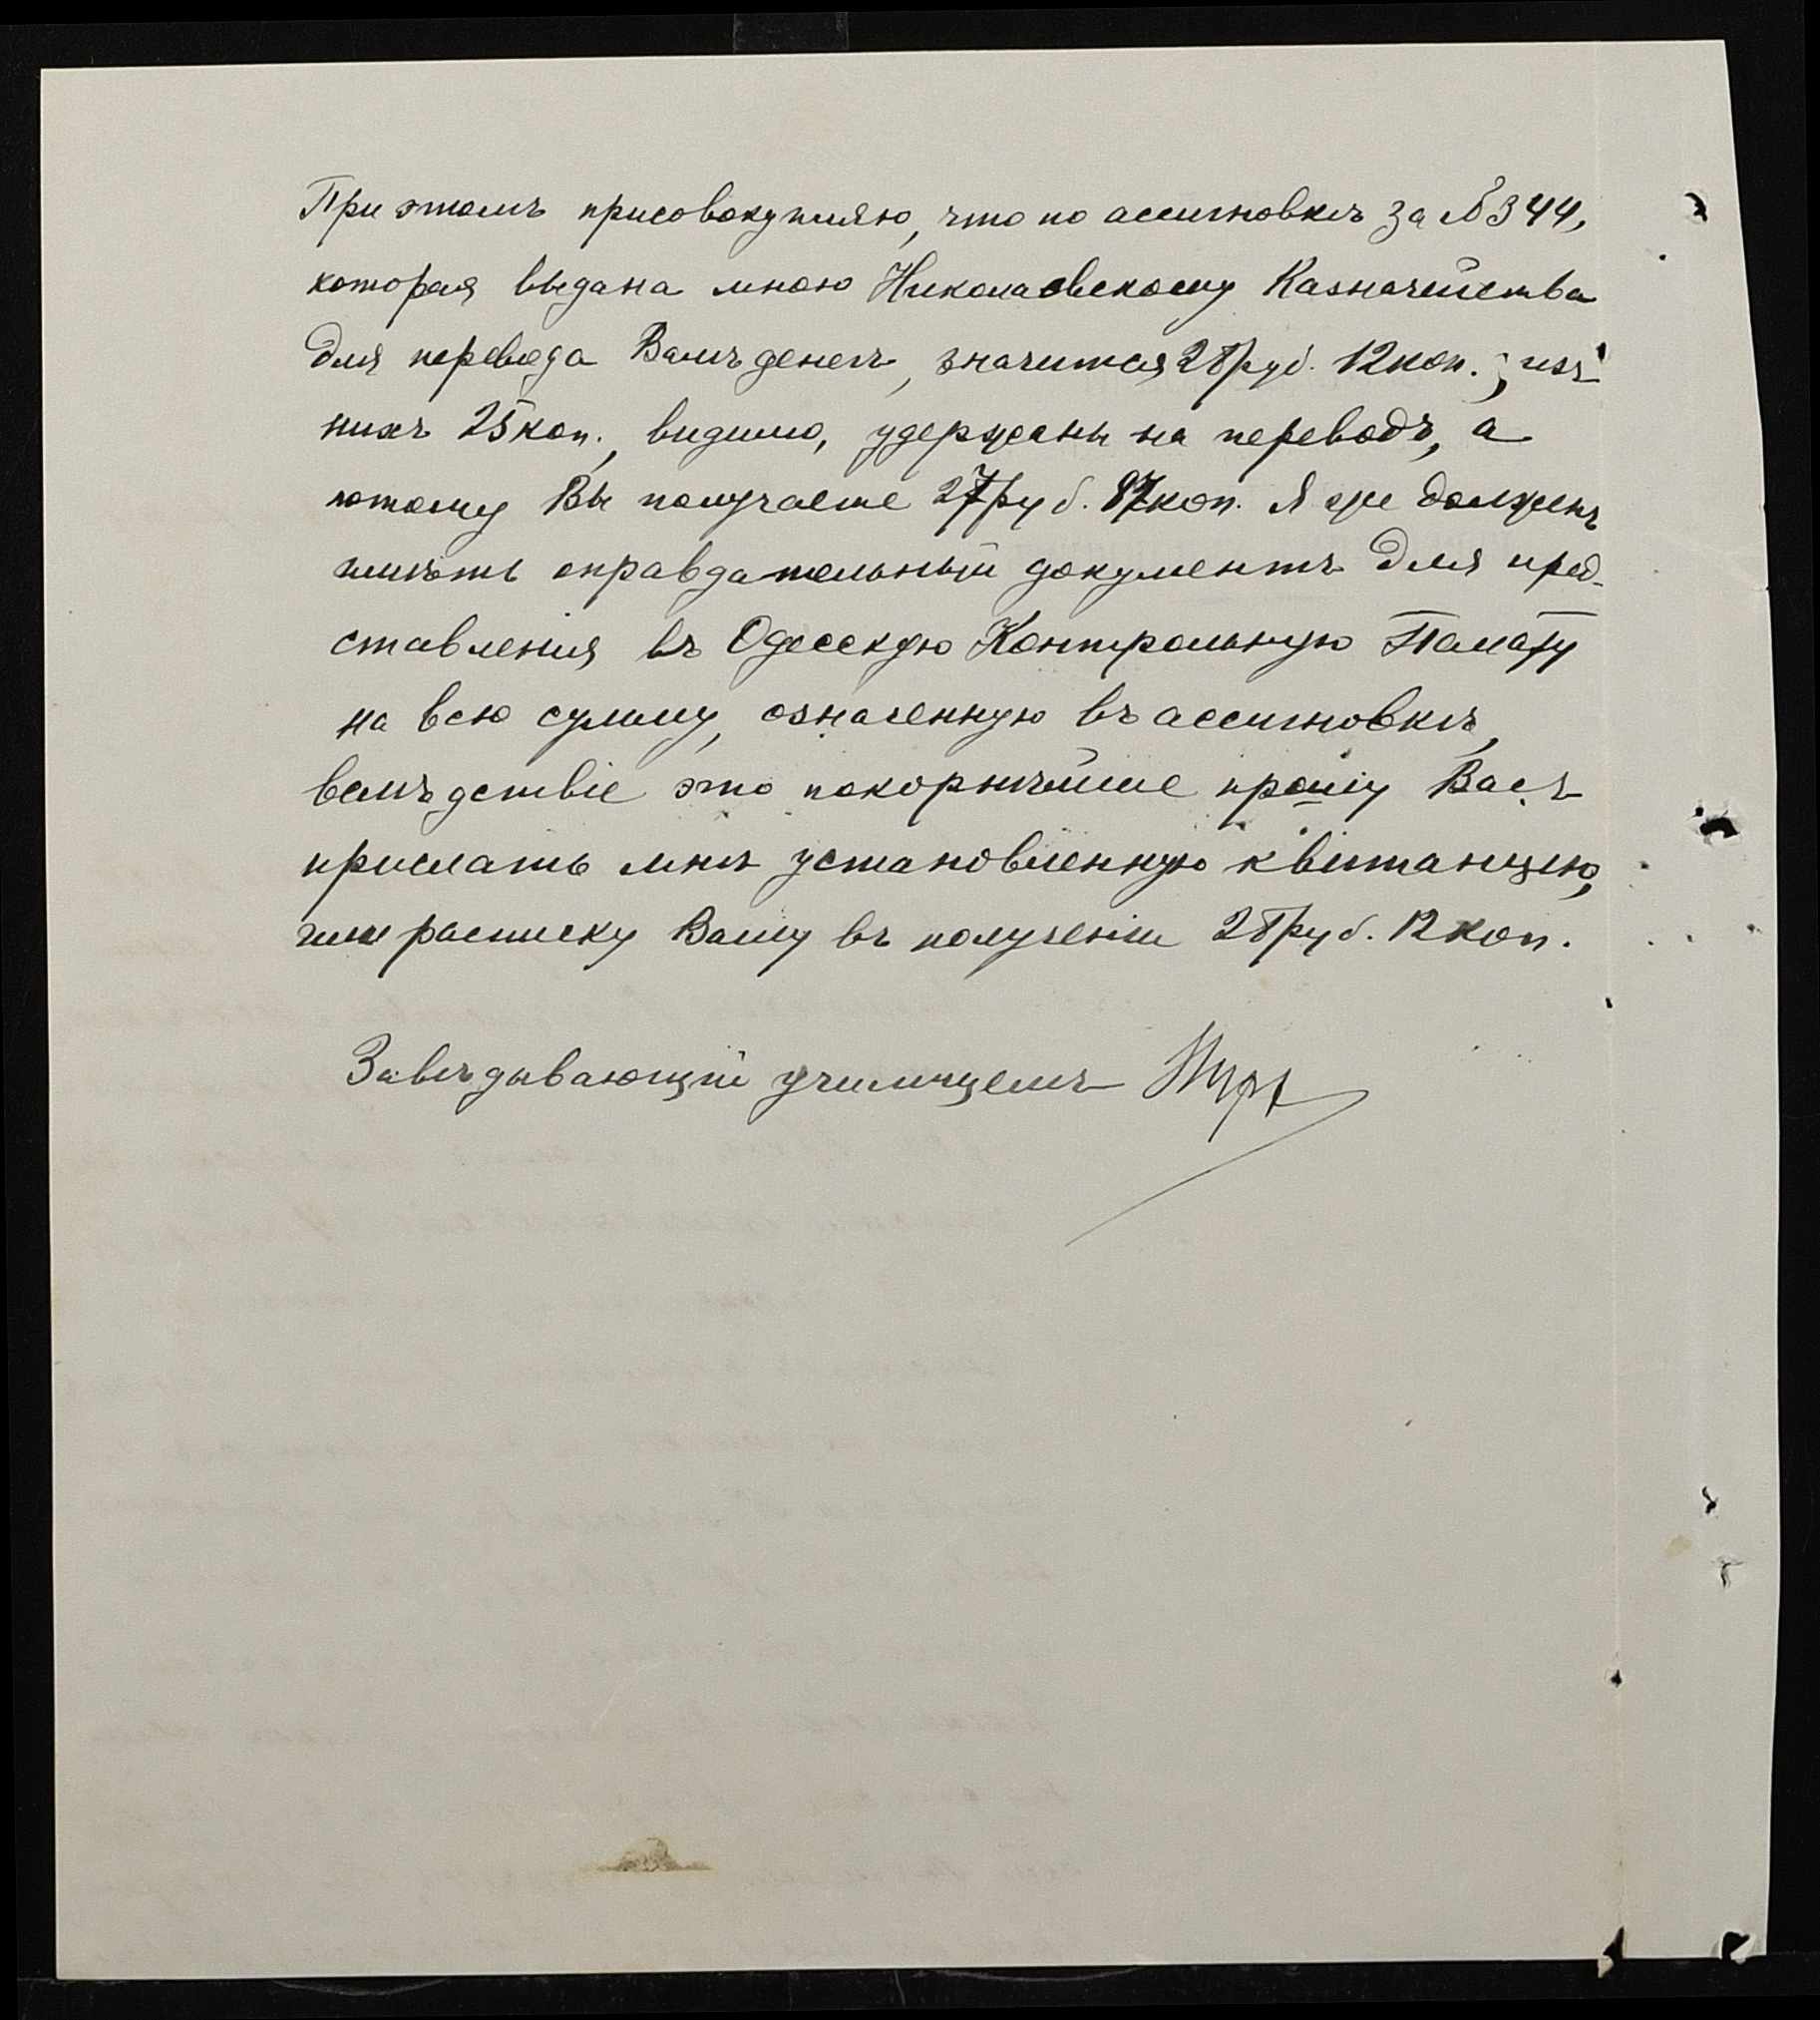 При этомъ присовокупляю, что по ассигновкѣ за № 344,
которая выдана мною Николаевскому Казначейства
для перевода Вамъ денегъ, значится 28 руб. 12 коп.; изъ
нихъ 25 коп., видимо, удержаны на переводъ, а
потому Вы получаете 27 руб. 87 коп. Я же долженъ
имѣть оправдательный документъ для пред-
ставленія въ Одесскую Контрольную Палату
на всю сумму, означенную въ ассигновкѣ,
вслѣдствіе это покорнѣйше прошу Васъ
прислать мнѣ установленную квитанцію,
или расписку Вашу въ полученіи 28 руб. 12 коп.
Завѣдывающій училищемъ